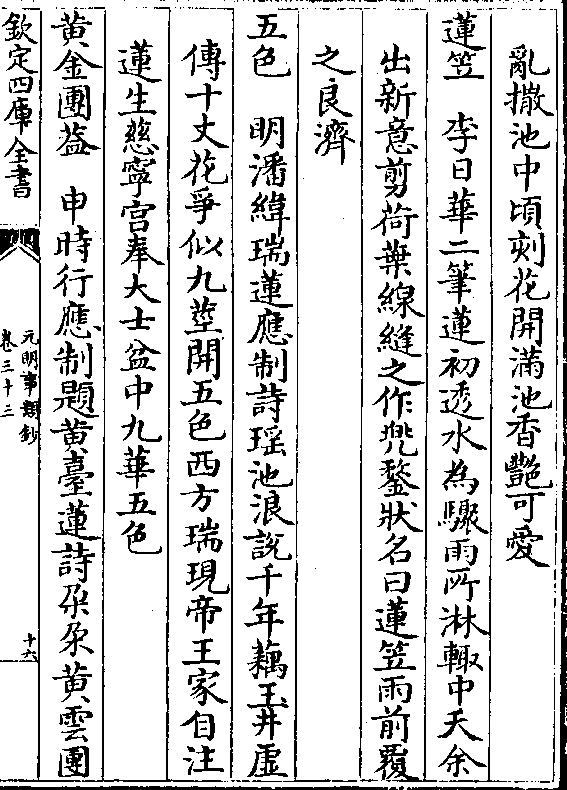 亂撒池中頃刻花開滿池香艷可愛
蓮笠　李日華二筆蓮初透水為驟雨所淋輙中夭余
出新意剪荷葉線縫之作兠鍪狀名曰蓮笠雨前覆
之良濟
五色　明潘緯瑞蓮應制詩瑶池浪說千年藕玉井虛
傳十丈花爭似九莖開五色西方瑞現帝王家自注
蓮生慈寧宫奉大士盆中九華五色
黄金團葢　申時行應制題黄臺蓮詩朶朶黄雲團
欽定四庫全書
元明事類鈔
卷三十三
十六